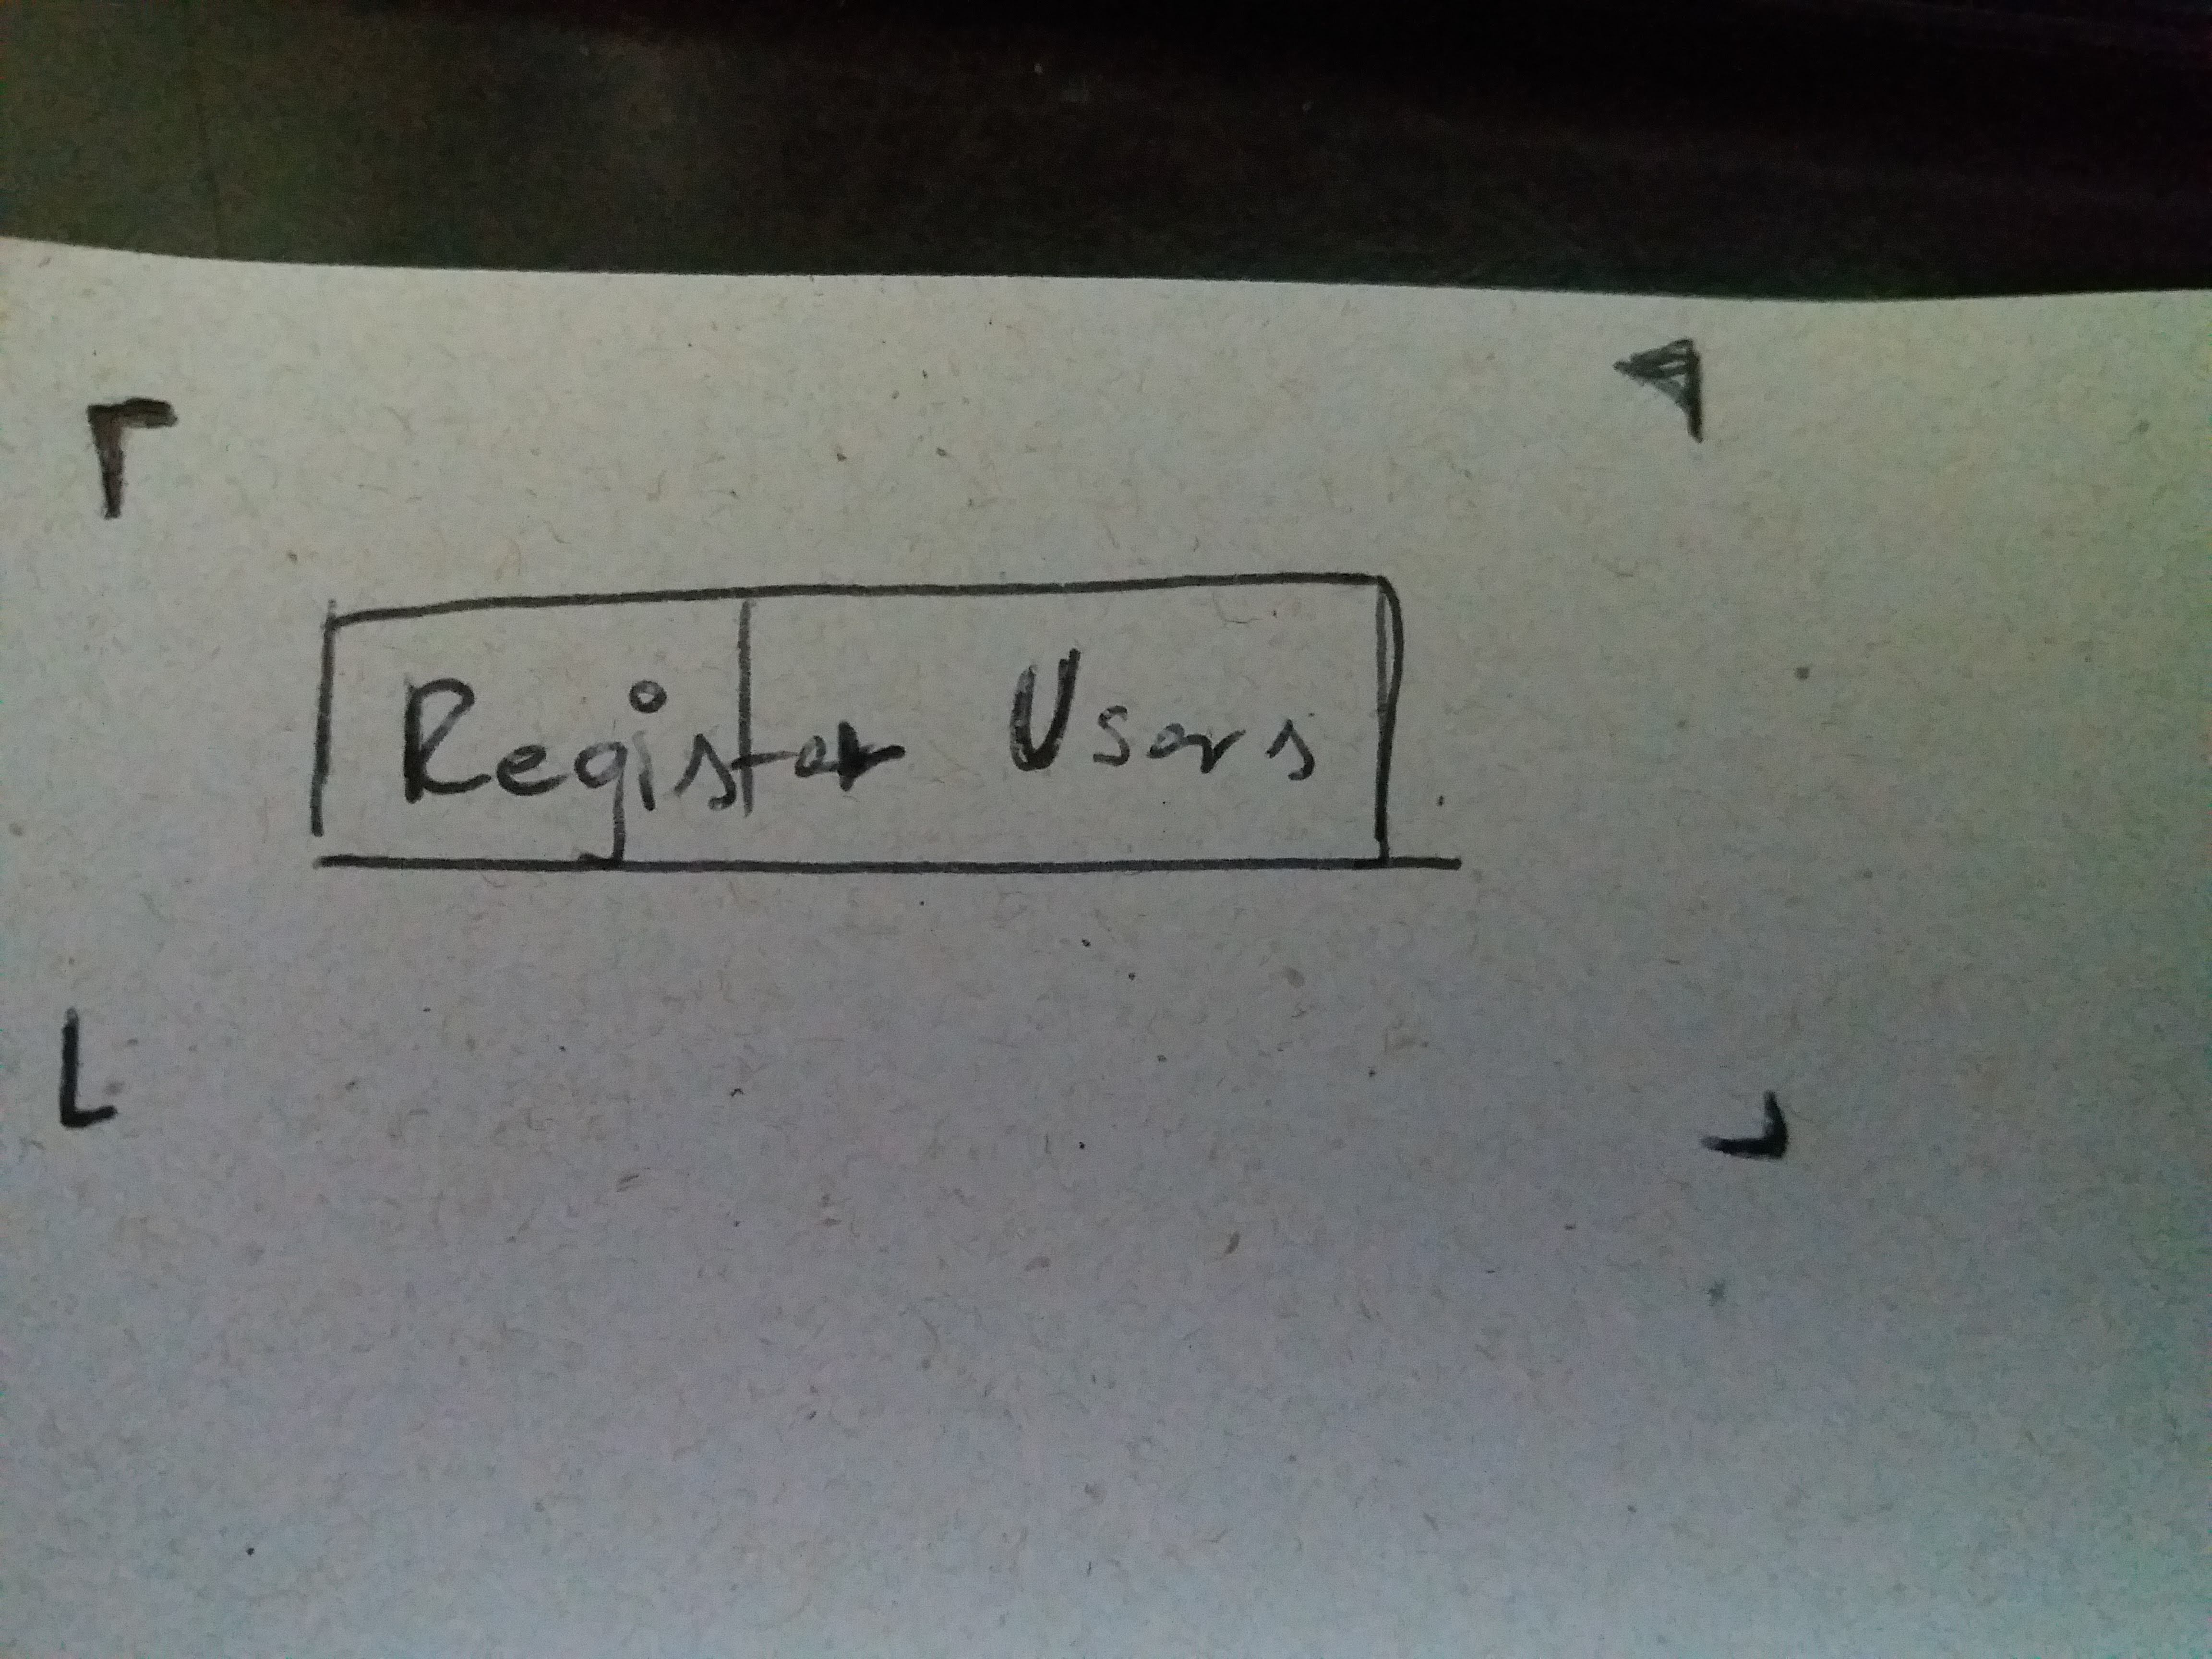 Register Users